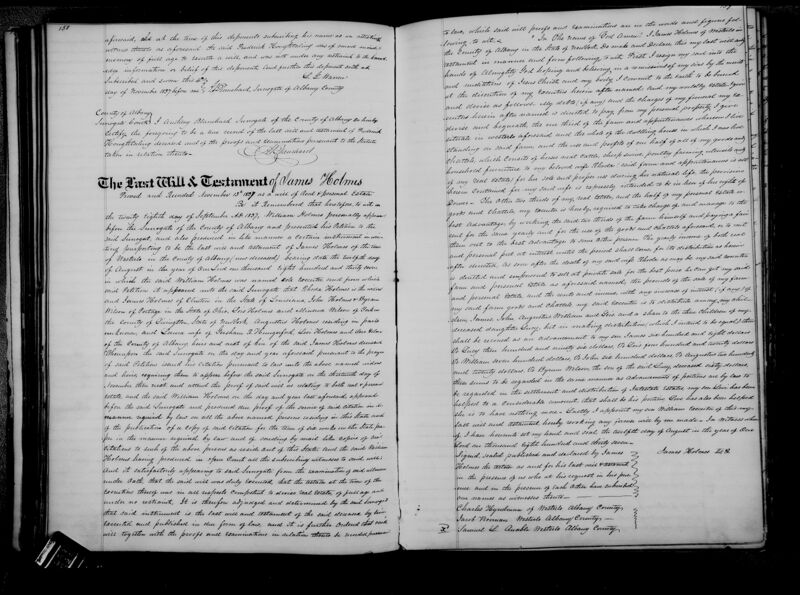 158.
aforesaid, and at the time of this deponent subscribing his name as an attesting
witness thereto as aforesaid the said Frederick Houghtaling was of sound mind &
memory of full age to execute a will, and was not under any restraint to the know-
ledge information or belief of this deponent And further this deponent saith not
Subscribed and sworn this
day of November 1837 before me A Blanchard, Surrogate of Albany County
County of Albany
Surrogate Court I Anthony Blanchard Surrogate of the County of Albany do hereby
Certify the foregoing to be a true record of the last will and testament of Frederick
Houghtaling deceased and of the proofs and examinations pursuant to the Statute
taken in relation thereto.
A Blanchard
The Last Will & Testament of James Holmes
Proved and Recorded November 13th 1837 as a will of Real & personal Estate
Be it Remembered that heretofore, to wit on
the twenty eighth day of September AD 1837, William Holmes personally appeared
before the Surrogate of the County of Albany and presented his Petition to the
said Surrogate, and also produced in like manner a certain instrument in wri-
ting purporting to be the last will and testament of James Holmes of the town
of Westerlo in the County of Albany (now deceased) bearing date the twelfth day
of August in the year of our Lord one thousand eight hundred and thirty seven
in which the said William Holmes was named sole executor and from which
said Petition it appeared unto the said Surrogate that Rhoda Holmes is the widow
and James Holmes of Clinton in the State of Louisiana John Holmes & Byram
Wilson of Portage in the State of Ohio, Lois Holmes and Minerva Wilson of
the County of Livingston State of New York Augustus Holmes residing in parts
unknown, and Laura wife of Gershom B Hungerford, Levi Holmes and Ann Holmes
of the County of Albany, heirs and next of kin of the said James Holmes deceased
Thereupon the said Surrogate on the day and year aforesaid pursuant to the prayer
of said Petition issued his Citation pursuant to law unto the above named widow
and heirs requiring them to appear before the said Surrogate on the thirteenth day of
November then next and attend the proof of said will as relating to both real & personal
estate and the said William Holmes on the day and year last aforesaid, appeared
before the said Surrogate and produced due proof of the service of said citation in the
manner required by law on all the above named persons residing in this state and
of the publication of a copy of said citation for the term of six weeks in the state pa-
per in the manner required by law and of sending by mail like copies of said
citations to such of the above persons as reside out of this State: and the said William
Holmes having produced in open Court all the subscribing witnesses to said will
And it satisfactorily appearing to said Surrogate from the examination of said witnesses
under Oath that the said will was duly executed, that the testator at the time of the
executing thereof was in all respects competent to devise real estate, of full age and
under no restraint. It is therefore adjudged and determined by the said Surrogate
that said instrument is the last will and testament of the said deceased by him
executed and published in due form of law, and it is further ordered that said
will together with the proofs and examinations in relation thereto be recorded pursuant
159
to law, which said will proofs and examinations are in the words and figures fol-
lowing, to wit. In The Name of God Amen: I James Holmes of Westerlo in
the County of Albany in the State of New York Do make and Declare this my last will and
testament in manner and form following to wit. First I resign my soul into the
hands of Almighty God hoping and believing, in a remission of my sins by the merits
and mediations of Jesus Christ and my body I commit to the earth to be buried
at the discretion of my Executor herein after named and my worldly estate I give
and devise as follows: My debts (if any) and the charges of my funeral my Ex-
ecutor herein after named is directed to pay from my personal property. I give
devise and bequeath the one third of the farm and appurtenances whereon I live
situate in Westerlo aforesaid and the whole of the dwelling house in which I now live
standing on said farm, and the use and profits of one half of all of my goods and
chattels, which consists of horses neat cattle, sheep swine poultry farming utensils and
household furniture to my beloved wife Rhoda: said farm and appurtenances is all
of my real estate; for his sole and proper use during her natural life, the provisions
herein contained for my said wife is expressly intended to be in lieu of her rights of
Dower. The other two thirds of my real estate, and the half of my personal estate in
goods and chattels my executor is hereby required to take charge of and manage to the
best advantage by working the said two thirds of the farm himself and paying a fair
rent for the same yearly and for the use of the goods and chattels aforesaid, or to rent
them out to the best advantage to some other person. The yearly income of both real
and personal put at interest until the period shall come for its distribution as herein-
after directed. As soon after the death of my said wife Rhoda as may be my said executor
is directed and empowered to sell at private sale for the best price he can get my said
farm and personal estate as aforesaid named, the proceeds of the sale of my farm
and personal estate, and the rents and income, with any increase of interest if any of
my said farm goods and chattels my said executor is to distribute among my child-
dren, James, John Augustus William and Lois and a share to the three children of my
deceased daughter Lucy, but in making distribution, which I intend to be equal, there
shall be reckoned as an advancement to my son James six hundred and eighty dollars
To Lucy three hundred and ninety six dollars. To Levi four hundred and twenty dollars
To William seven hundred dollars, To John six hundred dollars, To Augustus two hundred
and twenty dollars, To Byram Wilson the son of the said Lucy, deceased sixty dollars,
these sums to be regarded in the same manner as Advancements of portions are by law to
be regarded in the settlement and distribution of Intestate estates. my son Levi has been
helped to a considerable amount, that shall be his portion. Lois has also been helped
she is to have nothing more. Lastly I appoint my son William Executor of this my
last will and testament, hereby revoking any former wills by me made. In witness where-
of I have hereunto set my hand and seal the twelfth day of August in the year of Our
Lord on thousand eighteen hundred and thirty seven.
Signed sealed published and declared by James
Holmes the testator as and for his last will & testament
in the presence of us who at his request in his pre-
sence and in the presence of each other have subscribed
our names as witnesses thereto
James Holmes L.S.
Charles Hyndman of Westerlo Albany County,
Jacob Norman Westerlo Albany County,
Samuel L. Anable Westerlo Albany County,